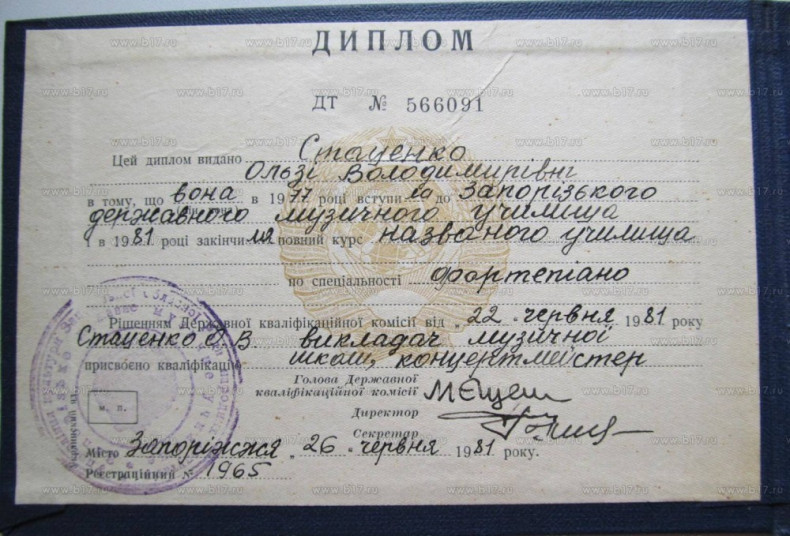 ДИПЛОМ
ДТ № 566091
Цей диплом видано Стаценко
Ользі Володимирівні
в тому, що вона в 1977 році вступила до Запорізького
державного музичного училища
і в 1981 році закінчила повний курс названого училища
по спеціальності фортепіано
Рішенням Державної кваліфікаційної комісії від „22" червня 1981 року
Стаценко О.В. викладач музичної
школи, концертмейстер
присвоєно кваліфікацію
Голова Державної
кваліфікаційної комісії
Директор
Секретар
м. п.
Місто Запоріжжя „26" червня 1981 року.
Реєстраційний № 1965
www.b17.ru